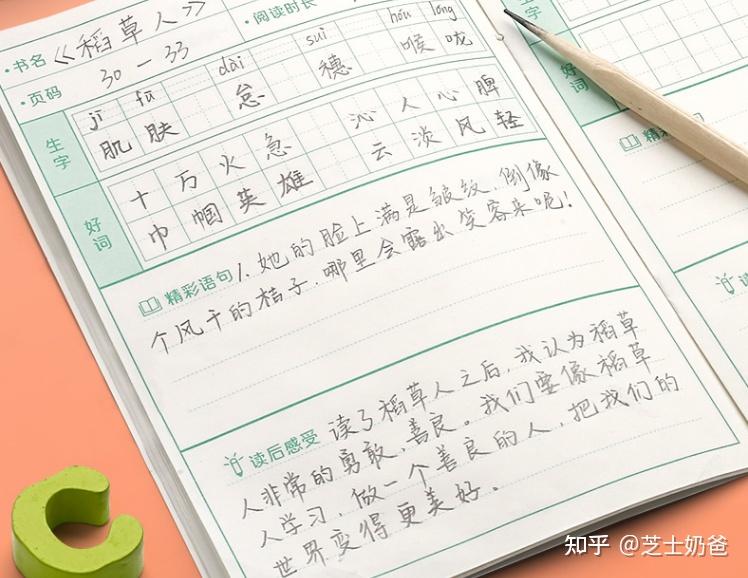 ·书名 《稻草人》 ·阅读时长
·页码 30—33
生字
jī fū dài suì hóu lóng
肌 肤 怠 穗 喉 咙
好词
十万火急 沁人心脾
巾帼英雄 云淡风轻
精彩语句 1.她的脸上满是皱纹,倒像
个风干的桔子,哪里会露出笑容来呢!
读后感受 读了稻草人之后,我认为稻草
人非常的勇敢,善良。我们要像稻草
人学习,做一个善良的人,把我们的
世界变得更美好。
生字
好词
精彩
读
知乎 @芝士奶爸